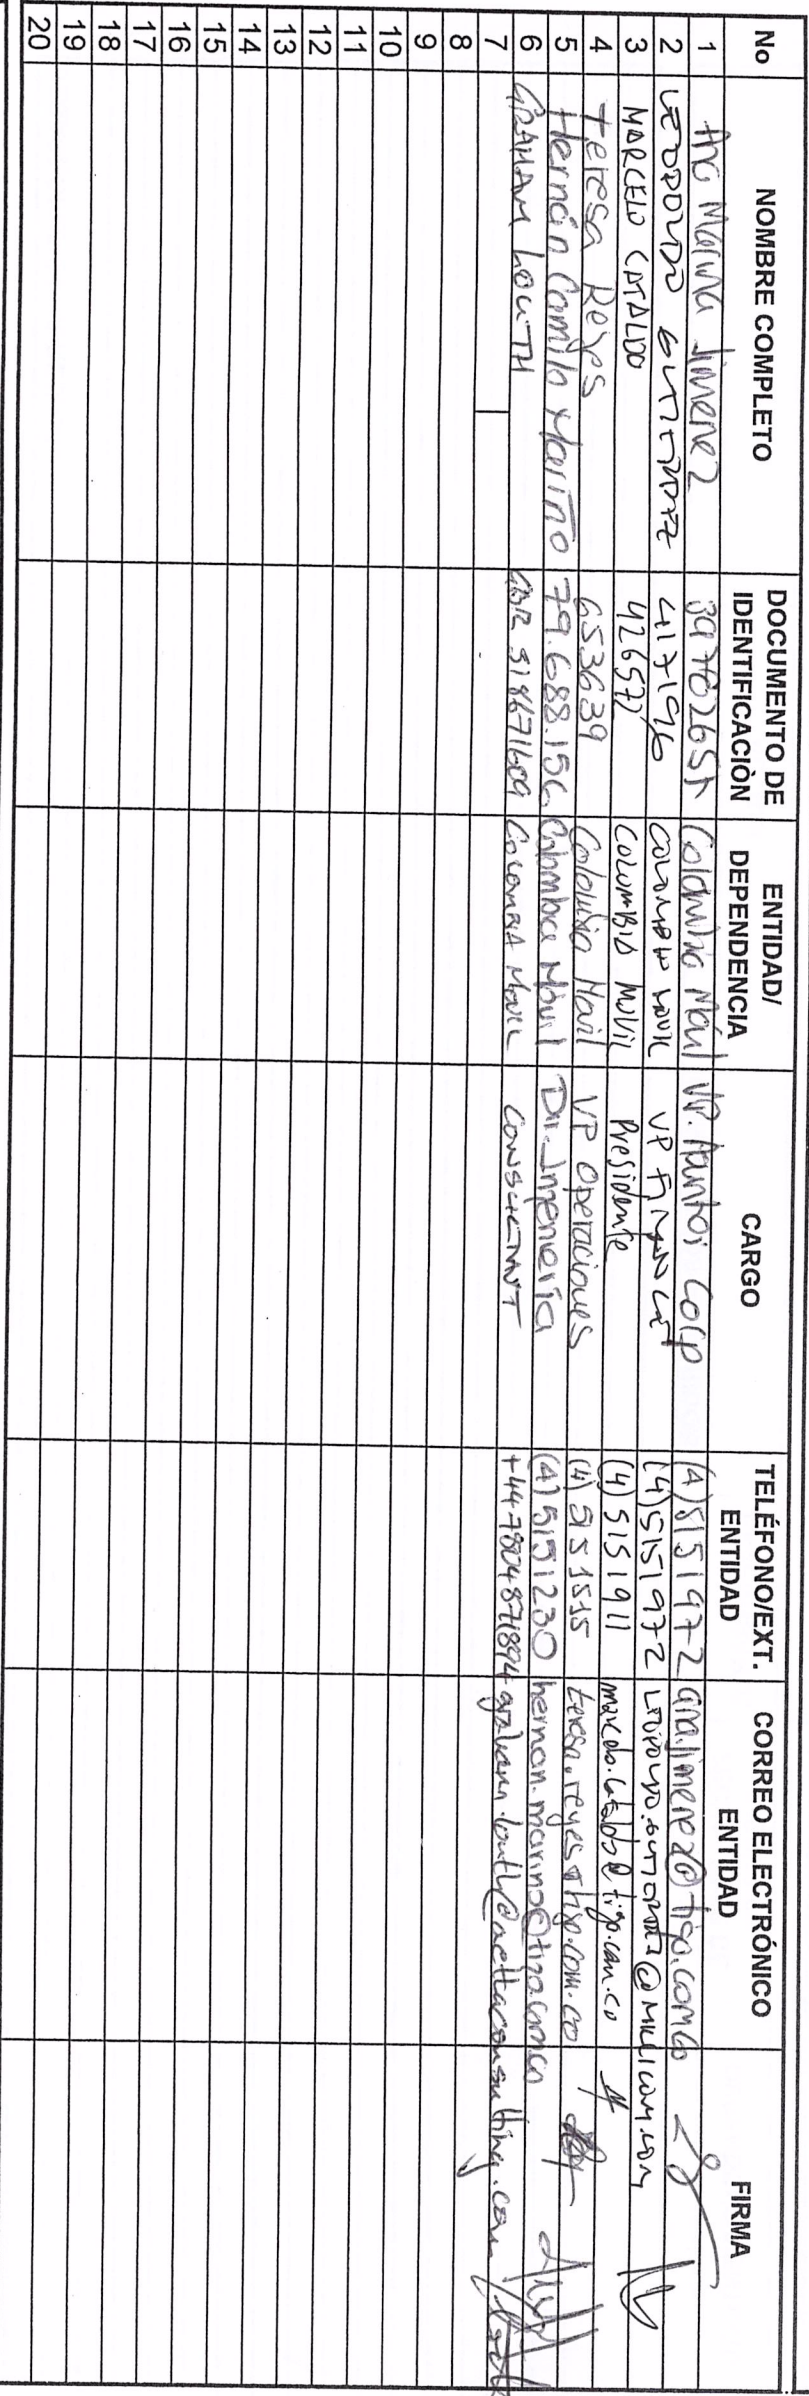 No NOMBRE COMPLETO DOCUMENTO DE IDENTIFICACIÒN ENTIDAD/ DEPENDENCIA CARGO TELÉFONO/EXT. ENTIDAD CORREO ELECTRÓNICO ENTIDAD FIRMA
1 Ana Marina Jimenez Colombia Móvil VP. Corp (4) 5151972 ana.jimenez@tigo.com.co
2 LEOPOLDO GUTIERREZ 417196 COLOMBIA MOVIL VP (4) 5151972 LEOPOLDO.GUTIERREZ@MILLICOM.COM
3 MARCELO CATALDO 426572 COLOMBIA MOVIL Presidente (4) 5151911 marcelo.cataldo@tigo.com.co
4 Teresa Reyes 653639 Colombia Movil VP Operaciones (4) 5151515 teresa.reyes@tigo.com.co
5 Hernán Camilo Mariño 79.688.156 Colombia Móvil Dir. Ingeniería (4) 5151230 hernan.marino@tigo.com.co
6 GRAHAM LOUTH GBR COLOMBIA MOVIL CONSULTANT graham.louth@aettaconsulting.com
7
8
9
10
11
12
13
14
15
16
17
18
19
20